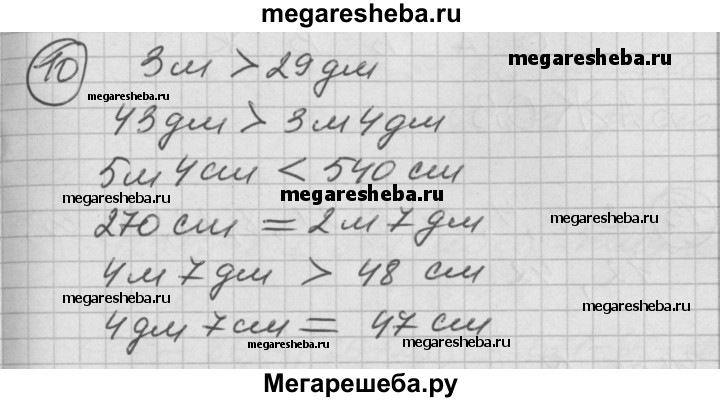 megaresheba.ru
10 3м > 29дм
megaresheba.ru
megaresheba.ru
43дм > 3м4дм
5м4см < 540см
megaresheba.ru
megaresheba.ru
270см = 2м7дм
4м7дм > 48см
megaresheba.ru
megaresheba.ru
4дм7см = 47см
megaresheba.ru
megaresheba.ru
Мегарешеба.ру